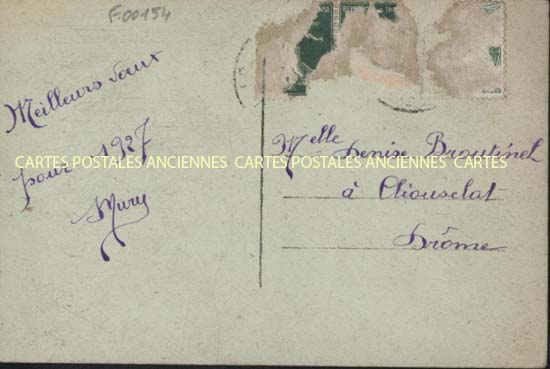 F00154
Meilleurs vœux
pour 1927
Mury
Melle Denise Broutinel
à Cliousclat
Drôme
CARTES POSTALES ANCIENNES CARTES POSTALES ANCIENNES CARTES